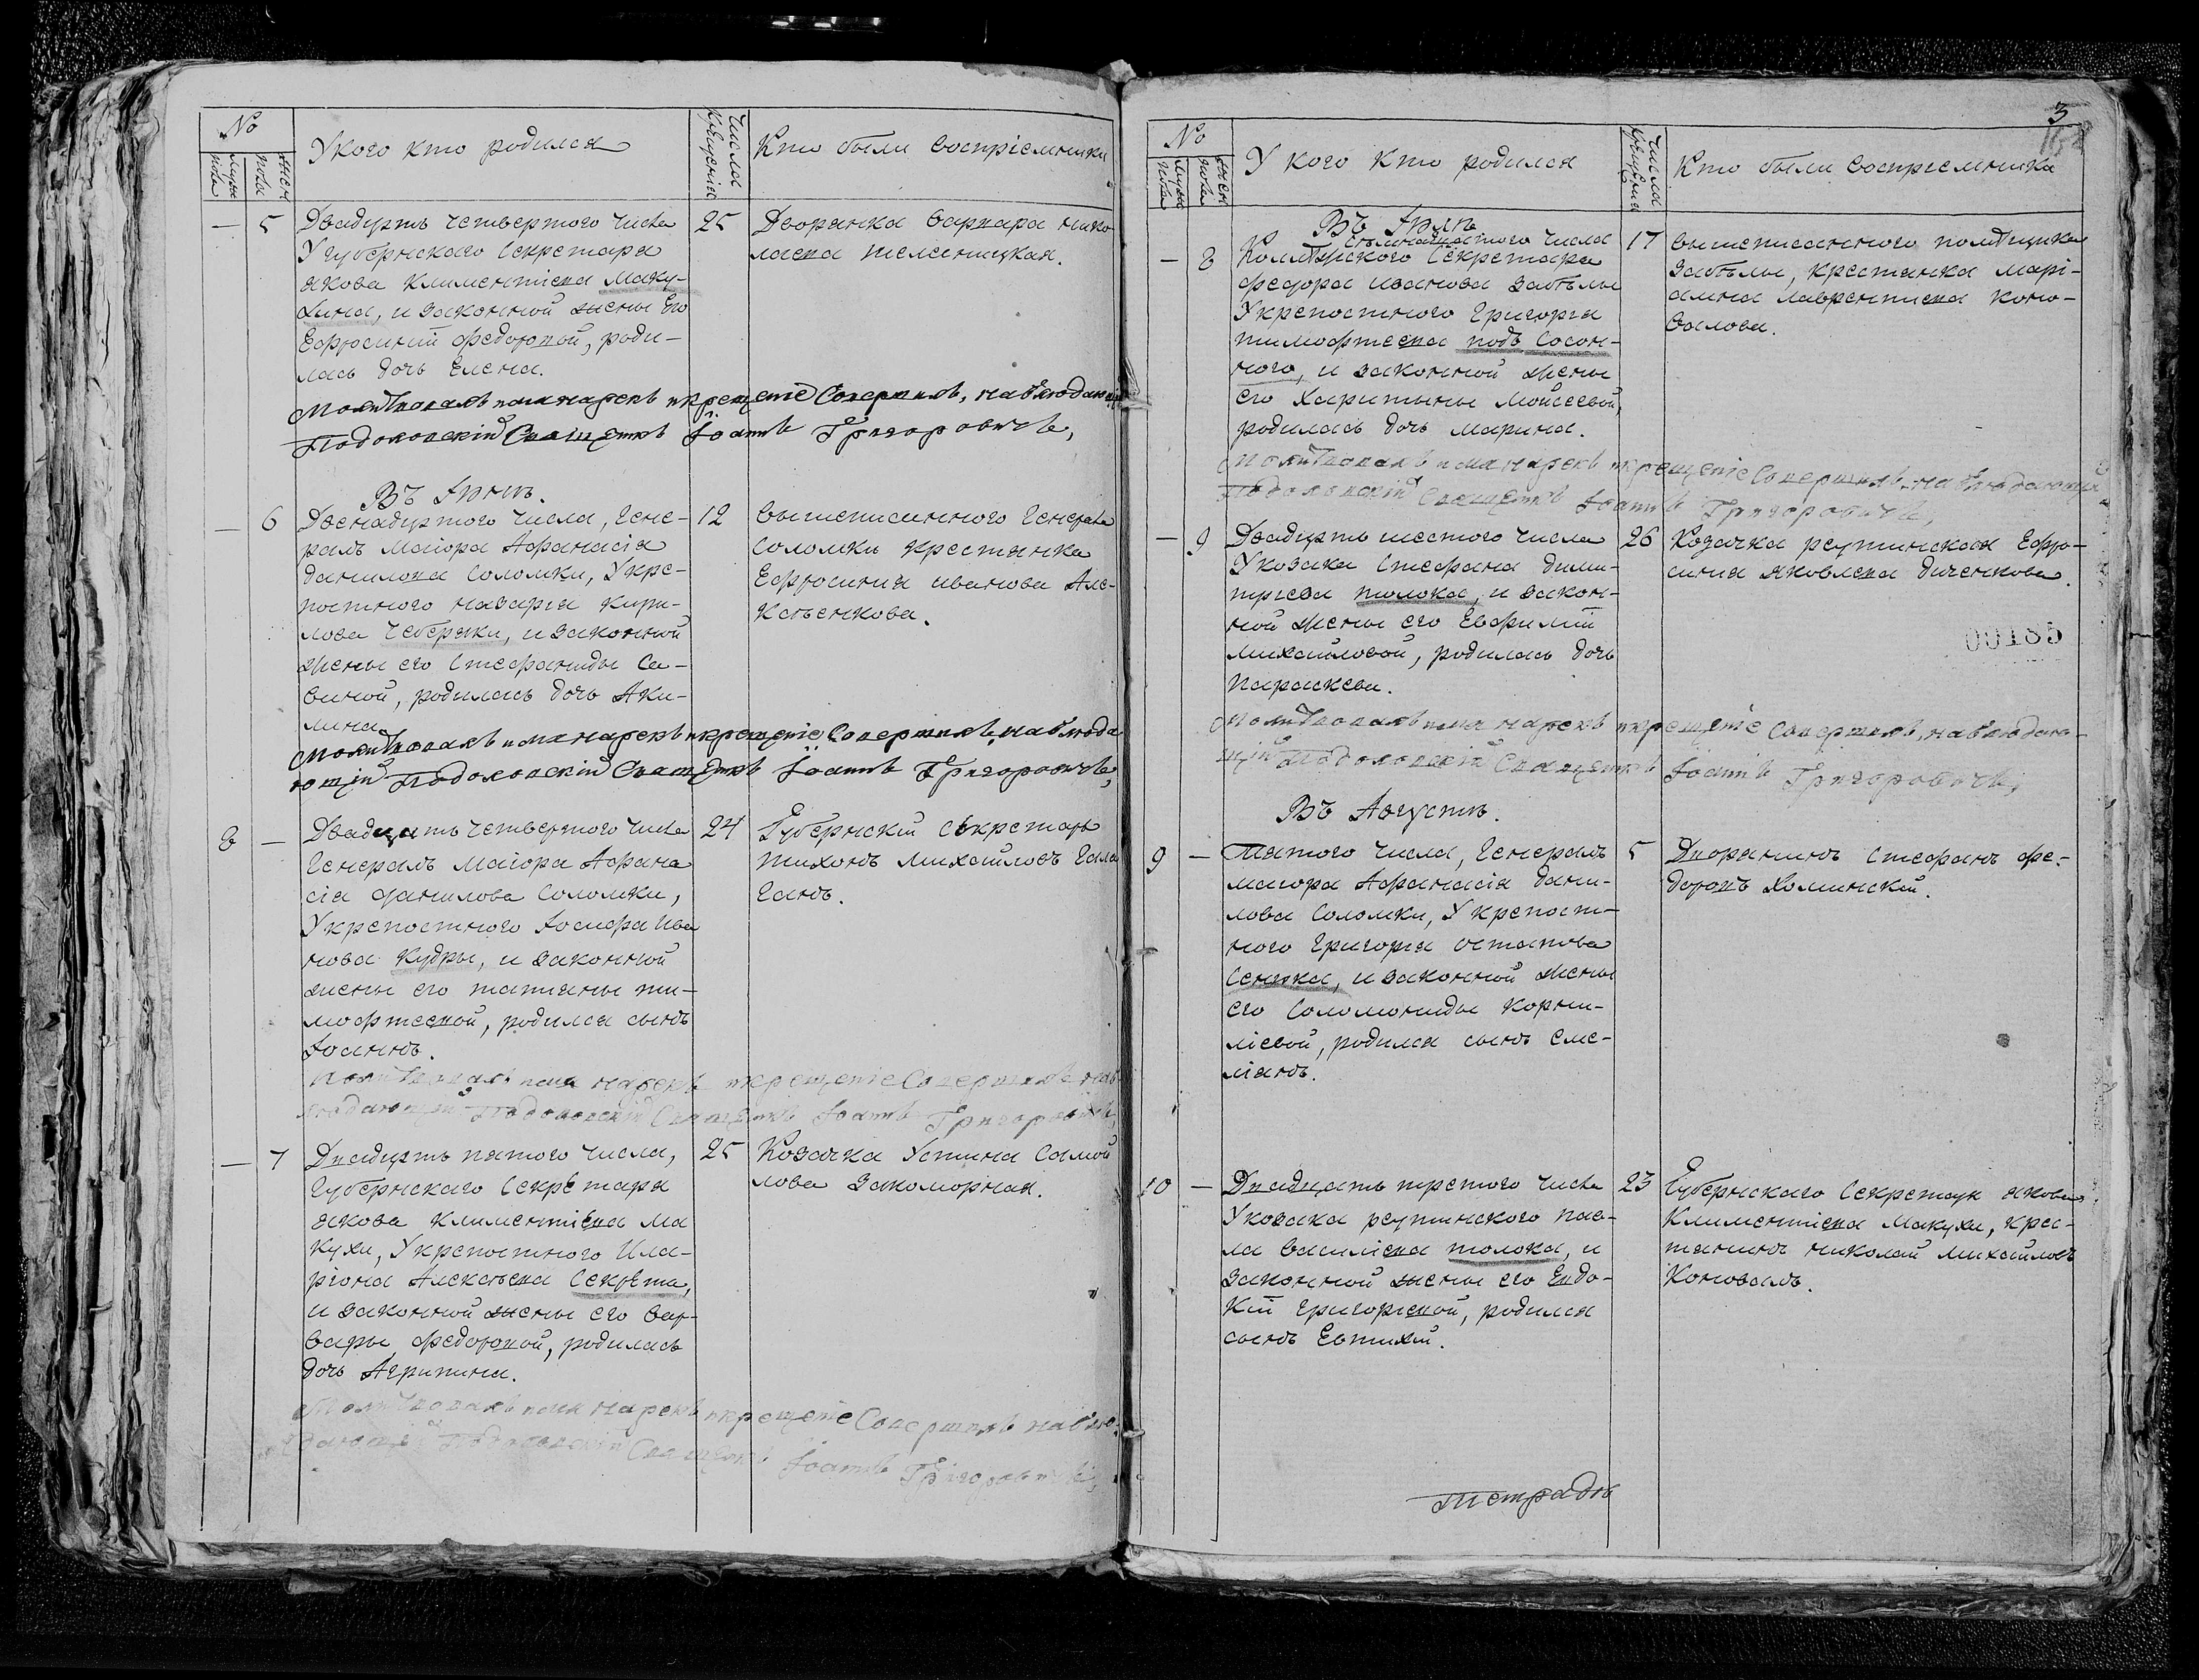 №
мужеска пола
женска пола
У кого кто родился
Числа крещенія
Кто были воспріемники
— 5
Двадцять четвертого числа
У губернскаго Секретара
Якова Климентіева Маку-
хина, и законной жены Его
Ефросиніи Федоровой, роди-
лась дочь Елена.
25
Дворянка Варвара Нико
лаева
Молитвовалъ имя нарекъ и крещеніе Совершилъ, наблюдающій
Священикъ Іоаннъ Григоровичъ,
Въ Іюнѣ.
— 6
Двенадцятого числа, Гене-
ралъ Маіора Афанасія
Данилова Соломки, У кре-
постного Назарія Кири-
лова Чебряки, и законной
жены его Стефаниды Са-
виной, родилась дочь Аки-
лина
12
вышеписанного Генерала
Соломки крестянка
Ефросинія Иванова Але-
ксѣенкова.
Молитвовалъ имя нарекъ и крещеніе Совершилъ, наблюда
ющій Священикъ Іоаннъ Григоровичъ,
8 —
Двадцать четвертого числа
Генералъ Маіора Афана
сія Данилова Соломки,
У крепостного Іосифа Ива
нова Кудры, и законной
жены его Татіяны Ти-
мофтеевой, родился сынъ
Іоаннъ.
24
Губернскій Секретарь
Тихонъ Михайловъ Гала
ганъ.
Молитвовалъ имя нарекъ и крещеніе Совершилъ наб
людающій Священикъ Іоаннъ Григоровичъ,
— 7
Двадцять пятого числа,
Губернскаго Секретаря
Якова Климентіева Ма
кухи, У крепостного Ила-
ріона Алексѣева Секрета,
и законной жены его Вар-
вары Федоровой, родилась
дочь Агрипина.
25
Козачка Устина Самой
лова Закоморная.
Молитвовалъ имя нарекъ и крещеніе Совершилъ наблю-
дающій Священикъ Іоаннъ Григоровичъ,
3
№
мужеска пола
женска пола
У кого кто родился
Числа крещенія
Кто были воспріемники
Въ Іюлѣ
— 8
Семнадцатого числа
Колѣжского Секретара
Федора Иванова Забѣлы
У крепостного Григорія
Тимофтеева подъ Сосон-
ного, и законной жены
его Харитыны Мойсеевой,
родилась дочь Марина.
17
вышеписанного помѣщика
Забѣлы, крестянка Марі-
амна Лаврентиева Коно-
валова.
Молитвовалъ имя нарекъ и крещеніе Совершилъ, наблюдающій
Священикъ Іоаннъ Григоровичъ,
— 9
Двадцять шестого числа
У козака Стефана Дими-
триева Толока, и закон-
ной жены его Евфиміи
Михайловой, родилась дочь
Параскева.
26
Козачка реутинская Ефро-
синия Яковлева Диченкова.
00185
Молитвовалъ имя нарекъ и крещеніе Совершилъ, наблюдаю-
щій Священикъ Іоаннъ Григоровичъ,
Въ Августѣ.
9 —
Пятого числа, Генералъ
маіора Афанасія Дани-
лова Соломки, У крепост-
ного Григорія Остапова
Сенька, и законной жены
его Соломониды Корни-
ліевой, родился сынъ Еме-
ліянъ.
5
Дворянинъ Стефанъ Фе-
доровъ Холминскій.
10 —
Двадцать третого числа
У козака реутинского Пав-
ла Василіева Толока, и
законной жены его Евдо-
кіи Григориевой, родился
сынъ Евтихій.
23
Губернскаго Секретаря Якова
Климентіева Макухи, крес-
тянинъ Николай Михайловъ
Коновалъ.
Тетрадь